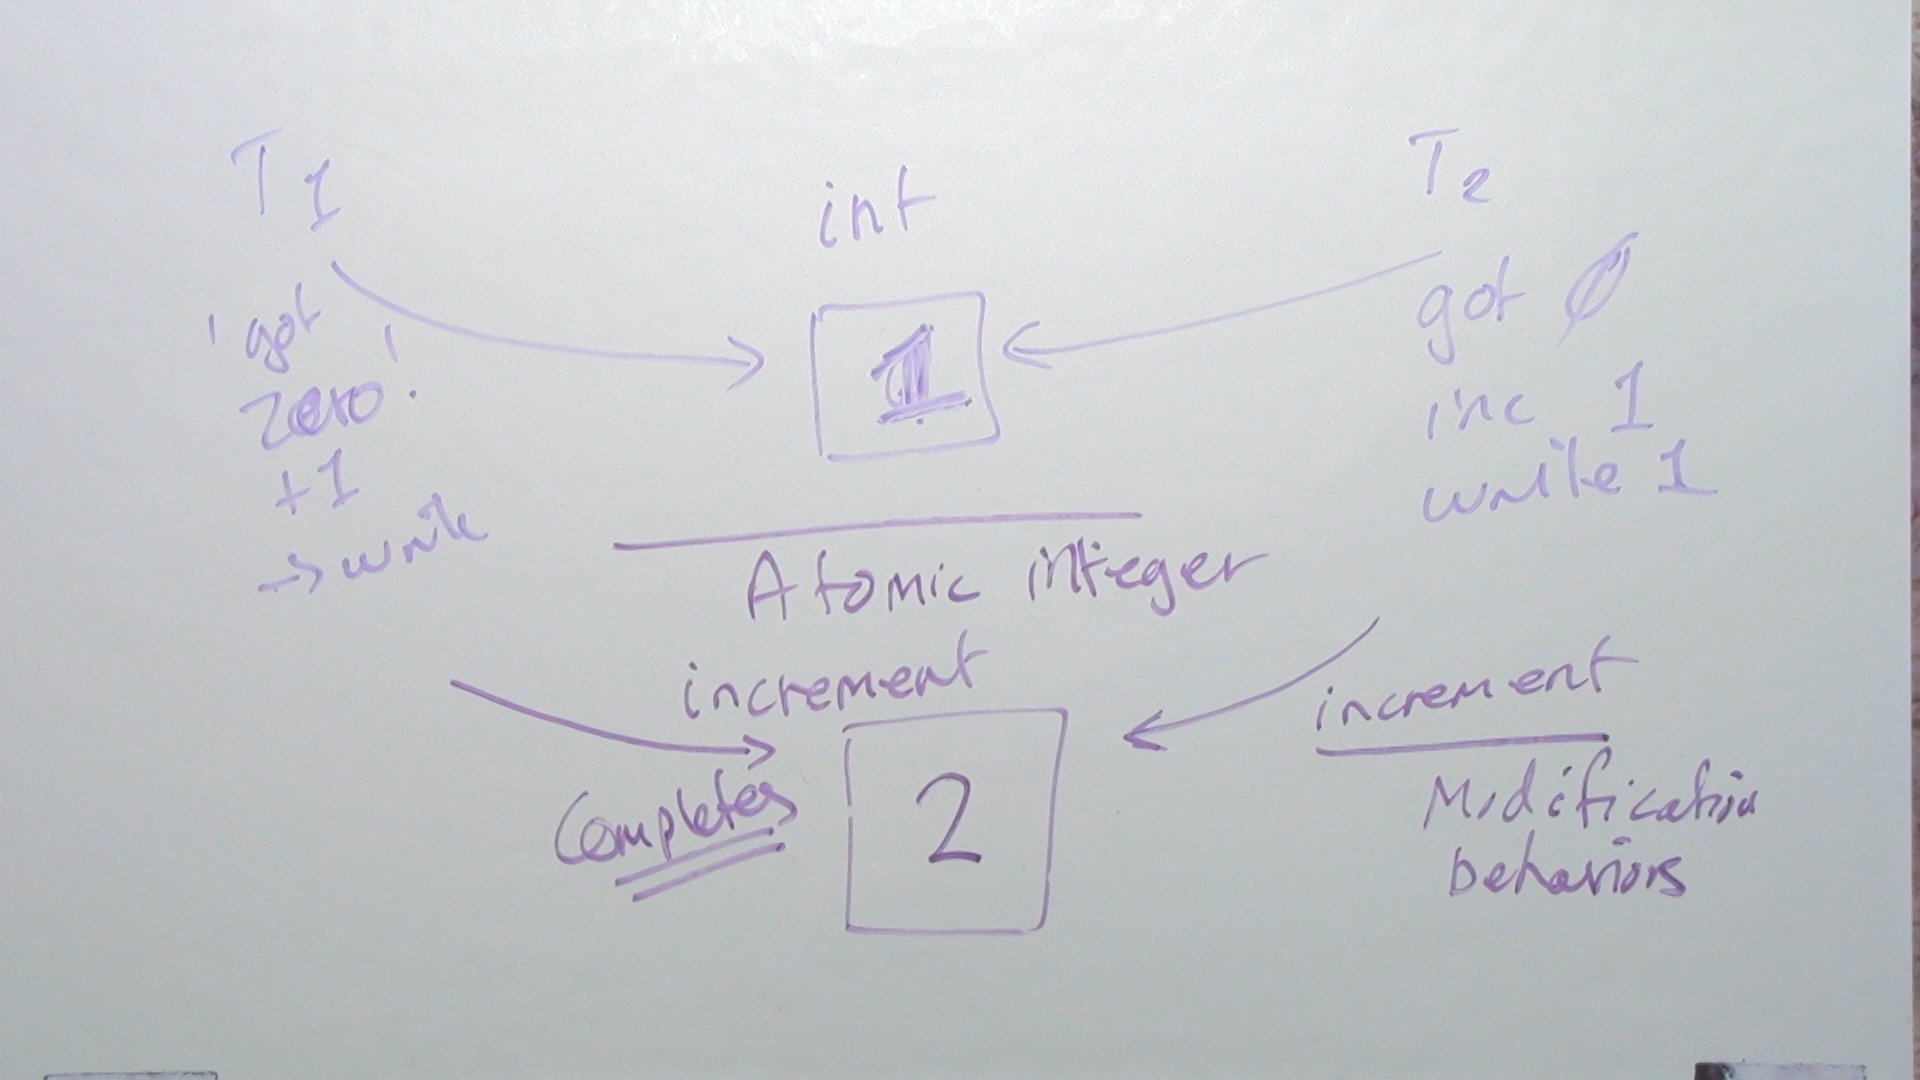 T1
int
T2
'got
zero'.
+1
→ write
1
got 0
inc 1
write 1
Atomic integer
increment
Completes
2
increment
Modification
behaviors